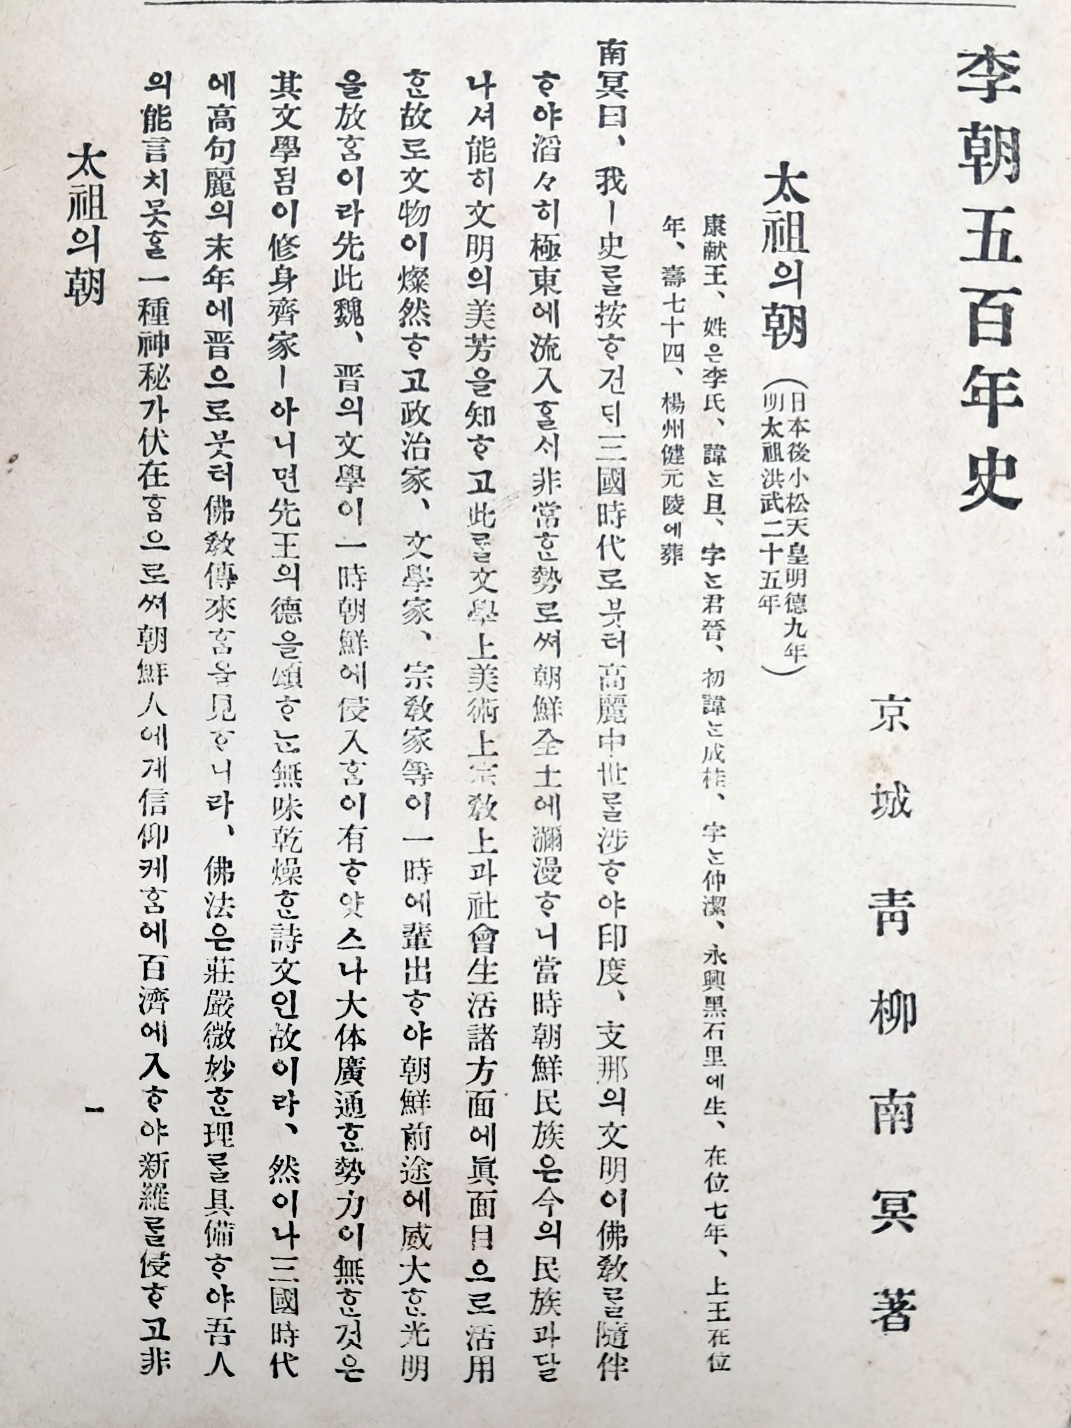 李朝五百年史
京城 靑柳南冥 著
太祖의朝 (日本後小松天皇明德九年
明太祖洪武二十五年)
康献王、姓은李氏、諱는旦、字는君晉、初諱는成桂、字는仲潔、永興黑石里에生、在位七年、上王在位
年、壽七十四、楊州健元陵에葬
南冥曰、我ㅣ史를按ᄒᆞ건ᄃᆡ三國時代로붓터高麗中世를涉ᄒᆞ야印度、支那의文明이佛敎를隨伴
ᄒᆞ야滔々히極東에流入ᄒᆞᆯᄉᆡ非常ᄒᆞᆫ勢로ᄡᅥ朝鮮全土에瀰漫ᄒᆞ니當時朝鮮民族은今의民族과달
나셔能히文明의美芳을知ᄒᆞ고此를文學上美術上宗敎上과社會生活諸方面에眞面目으로活用
ᄒᆞᆫ故로文物이燦然ᄒᆞ고政治家、文學家、宗敎家等이一時에輩出ᄒᆞ야朝鮮前途에威大ᄒᆞᆫ光明
을放ᄒᆞᆷ이라先此魏、晋의文學이一時朝鮮에侵入ᄒᆞᆷ이有ᄒᆞ얏스나大体廣通ᄒᆞᆫ勢力이無ᄒᆞᆫ것은
其文學됨이修身齊家ㅣ아니면先王의德을頌ᄒᆞ는無味乾燥ᄒᆞᆫ詩文인故이라、然이나三國時代
에高句麗의末年에晋으로붓터佛敎傳來ᄒᆞᆷ을見ᄒᆞ니라、佛法은莊嚴微妙ᄒᆞᆫ理를具備ᄒᆞ야吾人
의能言치못ᄒᆞᆯ一種神秘가伏在ᄒᆞᆷ으로ᄡᅥ朝鮮人에게信仰케ᄒᆞᆷ에百濟에入ᄒᆞ야新羅를侵ᄒᆞ고非
太祖의朝
一